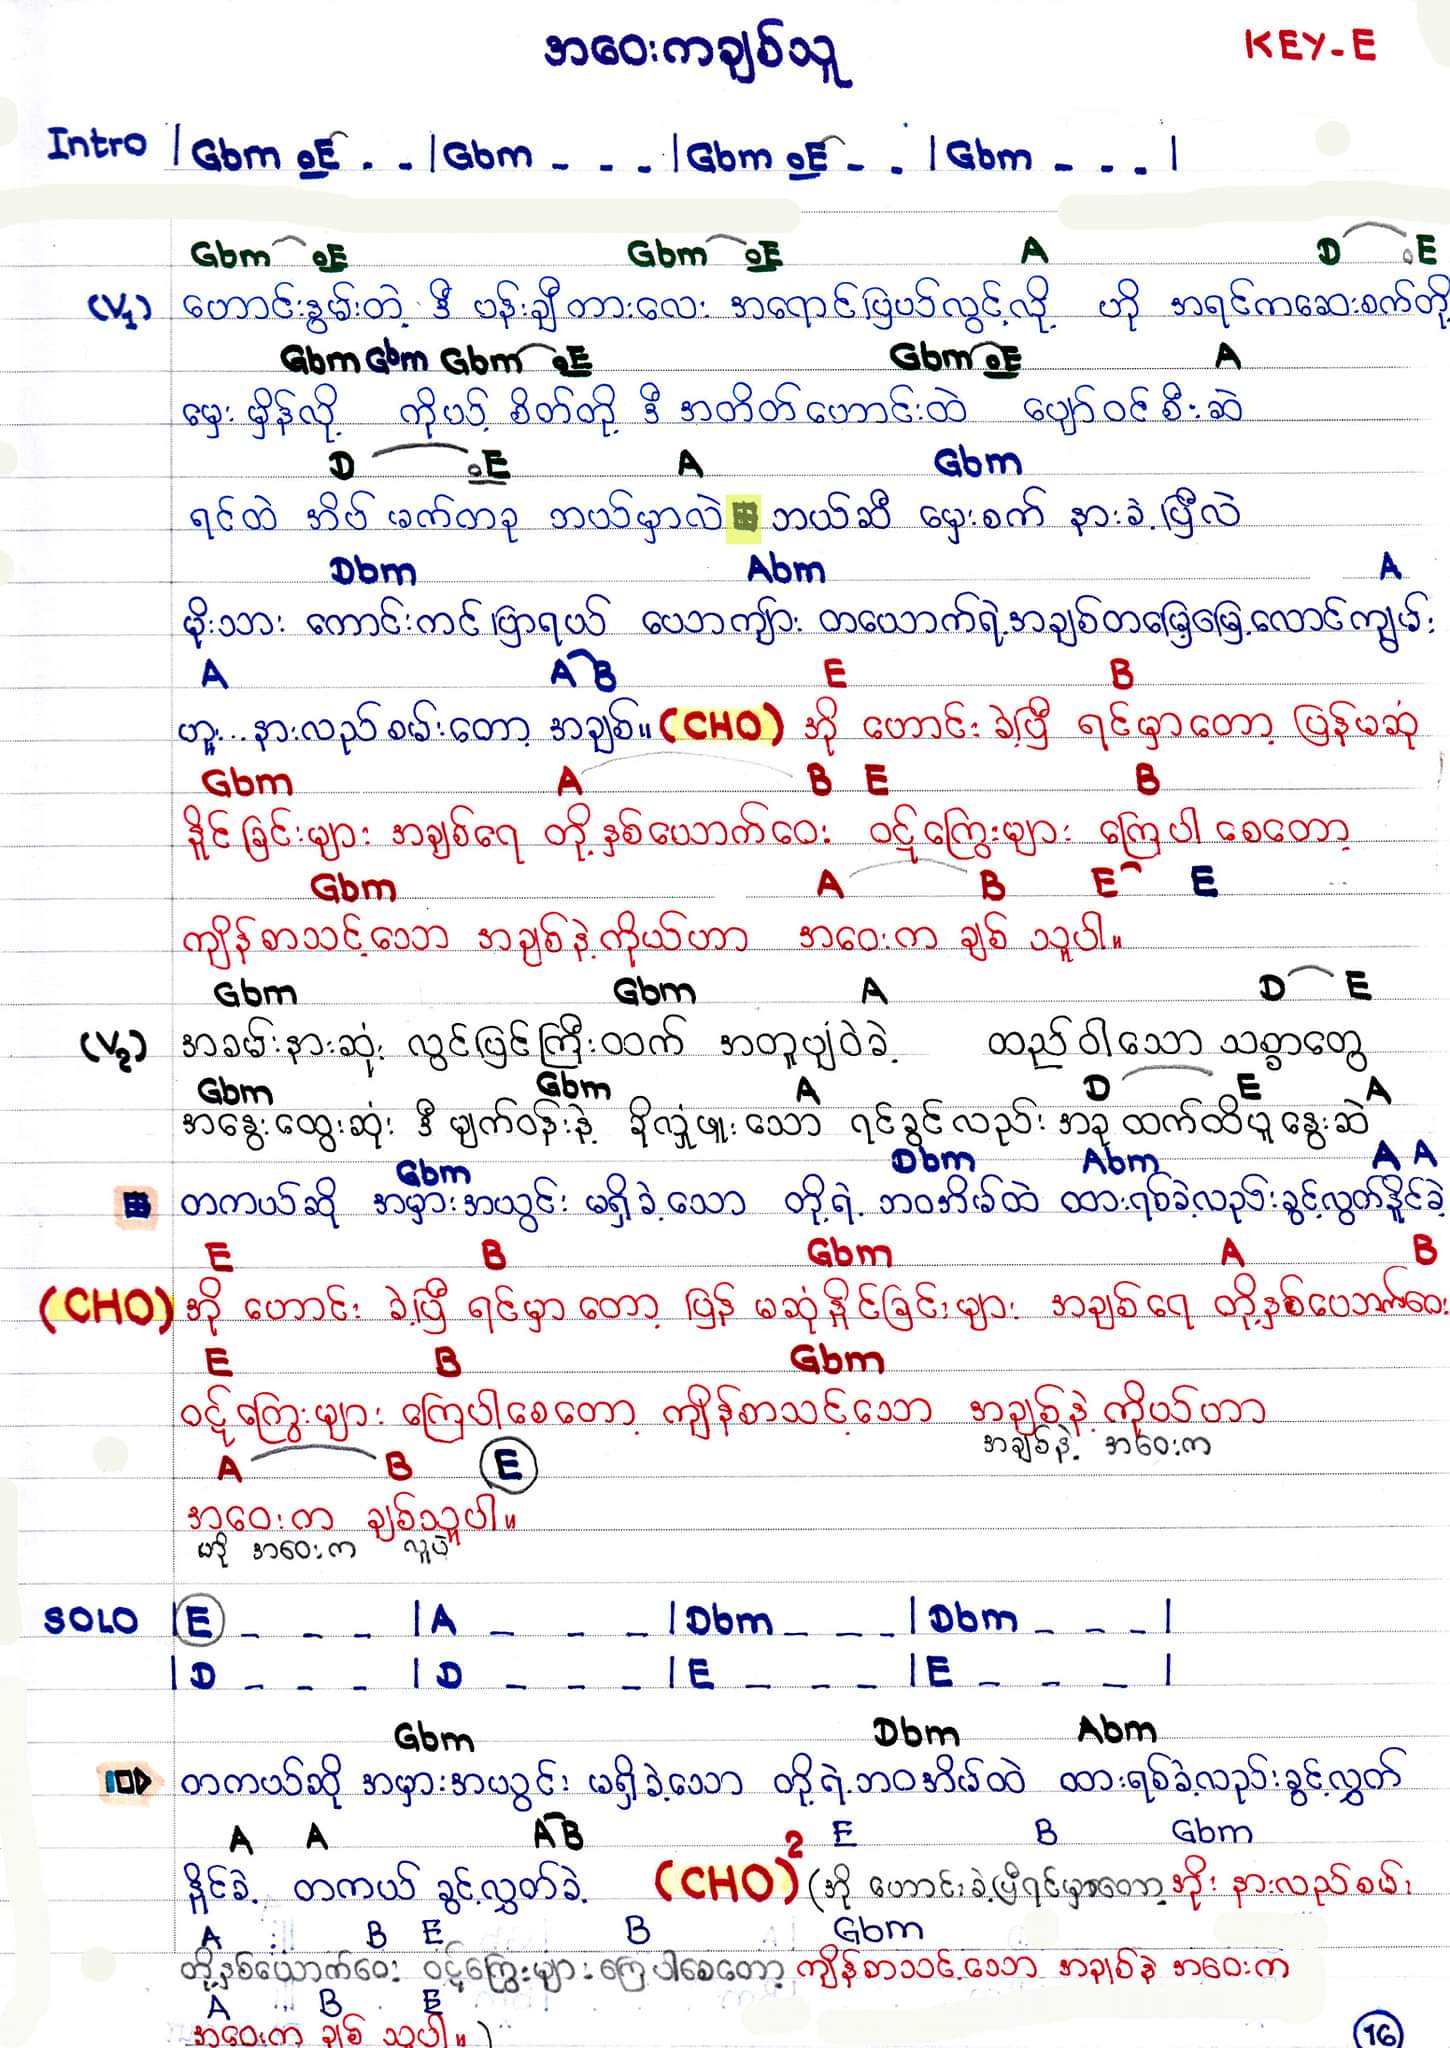 အဝေးကချစ်သူ
KEY-E
Intro | Gbm E . - | Gbm - - - | Gbm E - . | Gbm - - - |
Gbm E Gbm E A D E
(V1) ဟောင်းနွမ်းတဲ့ ဒီ ပန်းချီကားလေး အရောင်ပြယ်လွင့်လို့ ဟို အရင်ကဆေးစက်တို့
Gbm Gbm Gbm E Gbm E A
မှေးမှိန်လို့ ကိုယ့် စိတ်တို့ ဒီ အတိတ်ဟောင်းထဲ ပျော်ဝင်စီးဆဲ
D E A Gbm
ရင်ထဲ အိပ်မက်တခု ဘယ်မှာလဲ ဘယ်ဆီ မှေးစက် နားခဲ့ပြီလဲ
Dbm Abm A
မိုးသား ကောင်းကင်ပြာရယ် ယောကျာ်း တယောက်ရဲ့အချစ်တမြေ့မြေ့လောင်ကျွမ်း
A A B E B
ဟူး... နားလည်စမ်းတော့ အချစ်။ (CHO) အို ဟောင်းခဲ့ပြီ ရင်မှာတော့ ပြန်မဆုံ
Gbm A B E B
နိုင်ခြင်းများ အချစ်ရေ တို့နှစ်ယောက်ဝေး ဝဋ်ကြွေးများ ကြေပါစေတော့
Gbm A B E E
ကျိန်စာသင့်သော အချစ်နဲ့ကိုယ်ဟာ အဝေးက ချစ်သူပါ။
Gbm Gbm A D E
(V2) အခမ်းနားဆုံး လွင်ပြင်ကြီးထက် အတူပျံဝဲခဲ့ တည်ဝါသော သစ္စာတွေ
Gbm Gbm A D E A
အနွေးထွေးဆုံး ဒီမျက်ဝန်းနဲ့ ခိုလှုံဖူးသော ရင်ခွင်လည်း အခုထက်ထိယူနွေးဆဲ
Gbm Dbm Abm A A
တကယ်ဆို အမှားအယွင်း မရှိခဲ့သော တို့ရဲ့ ဘဝအိမ်ထဲ ထားရစ်ခဲ့လည်းခွင့်လွှတ်နိုင်ခဲ့
E B Gbm A B
(CHO) အို ဟောင်းခဲ့ပြီ ရင်မှာတော့ ပြန်မဆုံနိုင်ခြင်းများ အချစ်ရေ တို့နှစ်ယောက်ဝေး
E B Gbm
ဝဋ်ကြွေးများ ကြေပါစေတော့ ကျိန်စာသင့်သော အချစ်နဲ့ ကိုယ်ဟာ
အချစ်နဲ့ အဝေးက
A B E
အဝေးက ချစ်သူပါ။
ဟို အဝေးက လူပဲ
SOLO | E - - - | A - - - | Dbm - - - | Dbm - - - |
| D - - - | D - - - | E - - - | E - - - |
Gbm Dbm Abm
တကယ်ဆို အမှားအယွင်း မရှိခဲ့သော တို့ရဲ့ဘဝအိမ်ထဲ ထားရစ်ခဲ့လည်းခွင့်လွှတ်
A A A B E B Gbm
နိုင်ခဲ့ တကယ် ခွင့်လွှတ်ခဲ့ (CHO)2 (အို ဟောင်းခဲ့ပြီရင်မှာတော့ အိုး နားလည်စမ်း
A B E B Gbm
တို့နှစ်ယောက်ဝေး ဝဋ်ကြွေးများ ကြေပါစေတော့ ကျိန်စာသင့်သော အချစ်နဲ့ အဝေးက
A B E
အဝေးက ချစ်သူပါ။)
16